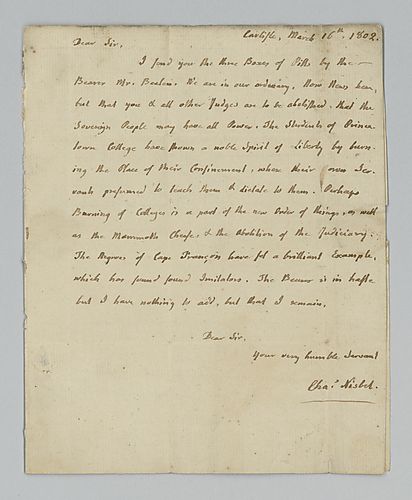 Carlisle, March 16th. 1802.
Dear Sir,
I send you the three Boxes of Pills by the
Bearer Mr. We are in our ordinary. News here,
but that you & all other Judges are to be abolished, that the
Sovereign People may have all Power. The Students of Prince
town College have shown a noble Spirit of Liberty by burn
ing the Place of their Confinement, where their own Ser
vants presumed to teach them & dictate to them. Perhaps
Burning of Colleges is a part of the new Order of things, as well
as the Mammoth Cheese, & the Abolition of the Judiciary.
The Negroes of Cape François have set a brilliant Example,
which has found Imitators. The Bearer is in haste
but I have nothing to add, but that I remain,
Dear Sir,
Your very humble Servant
Chas. Nisbet.